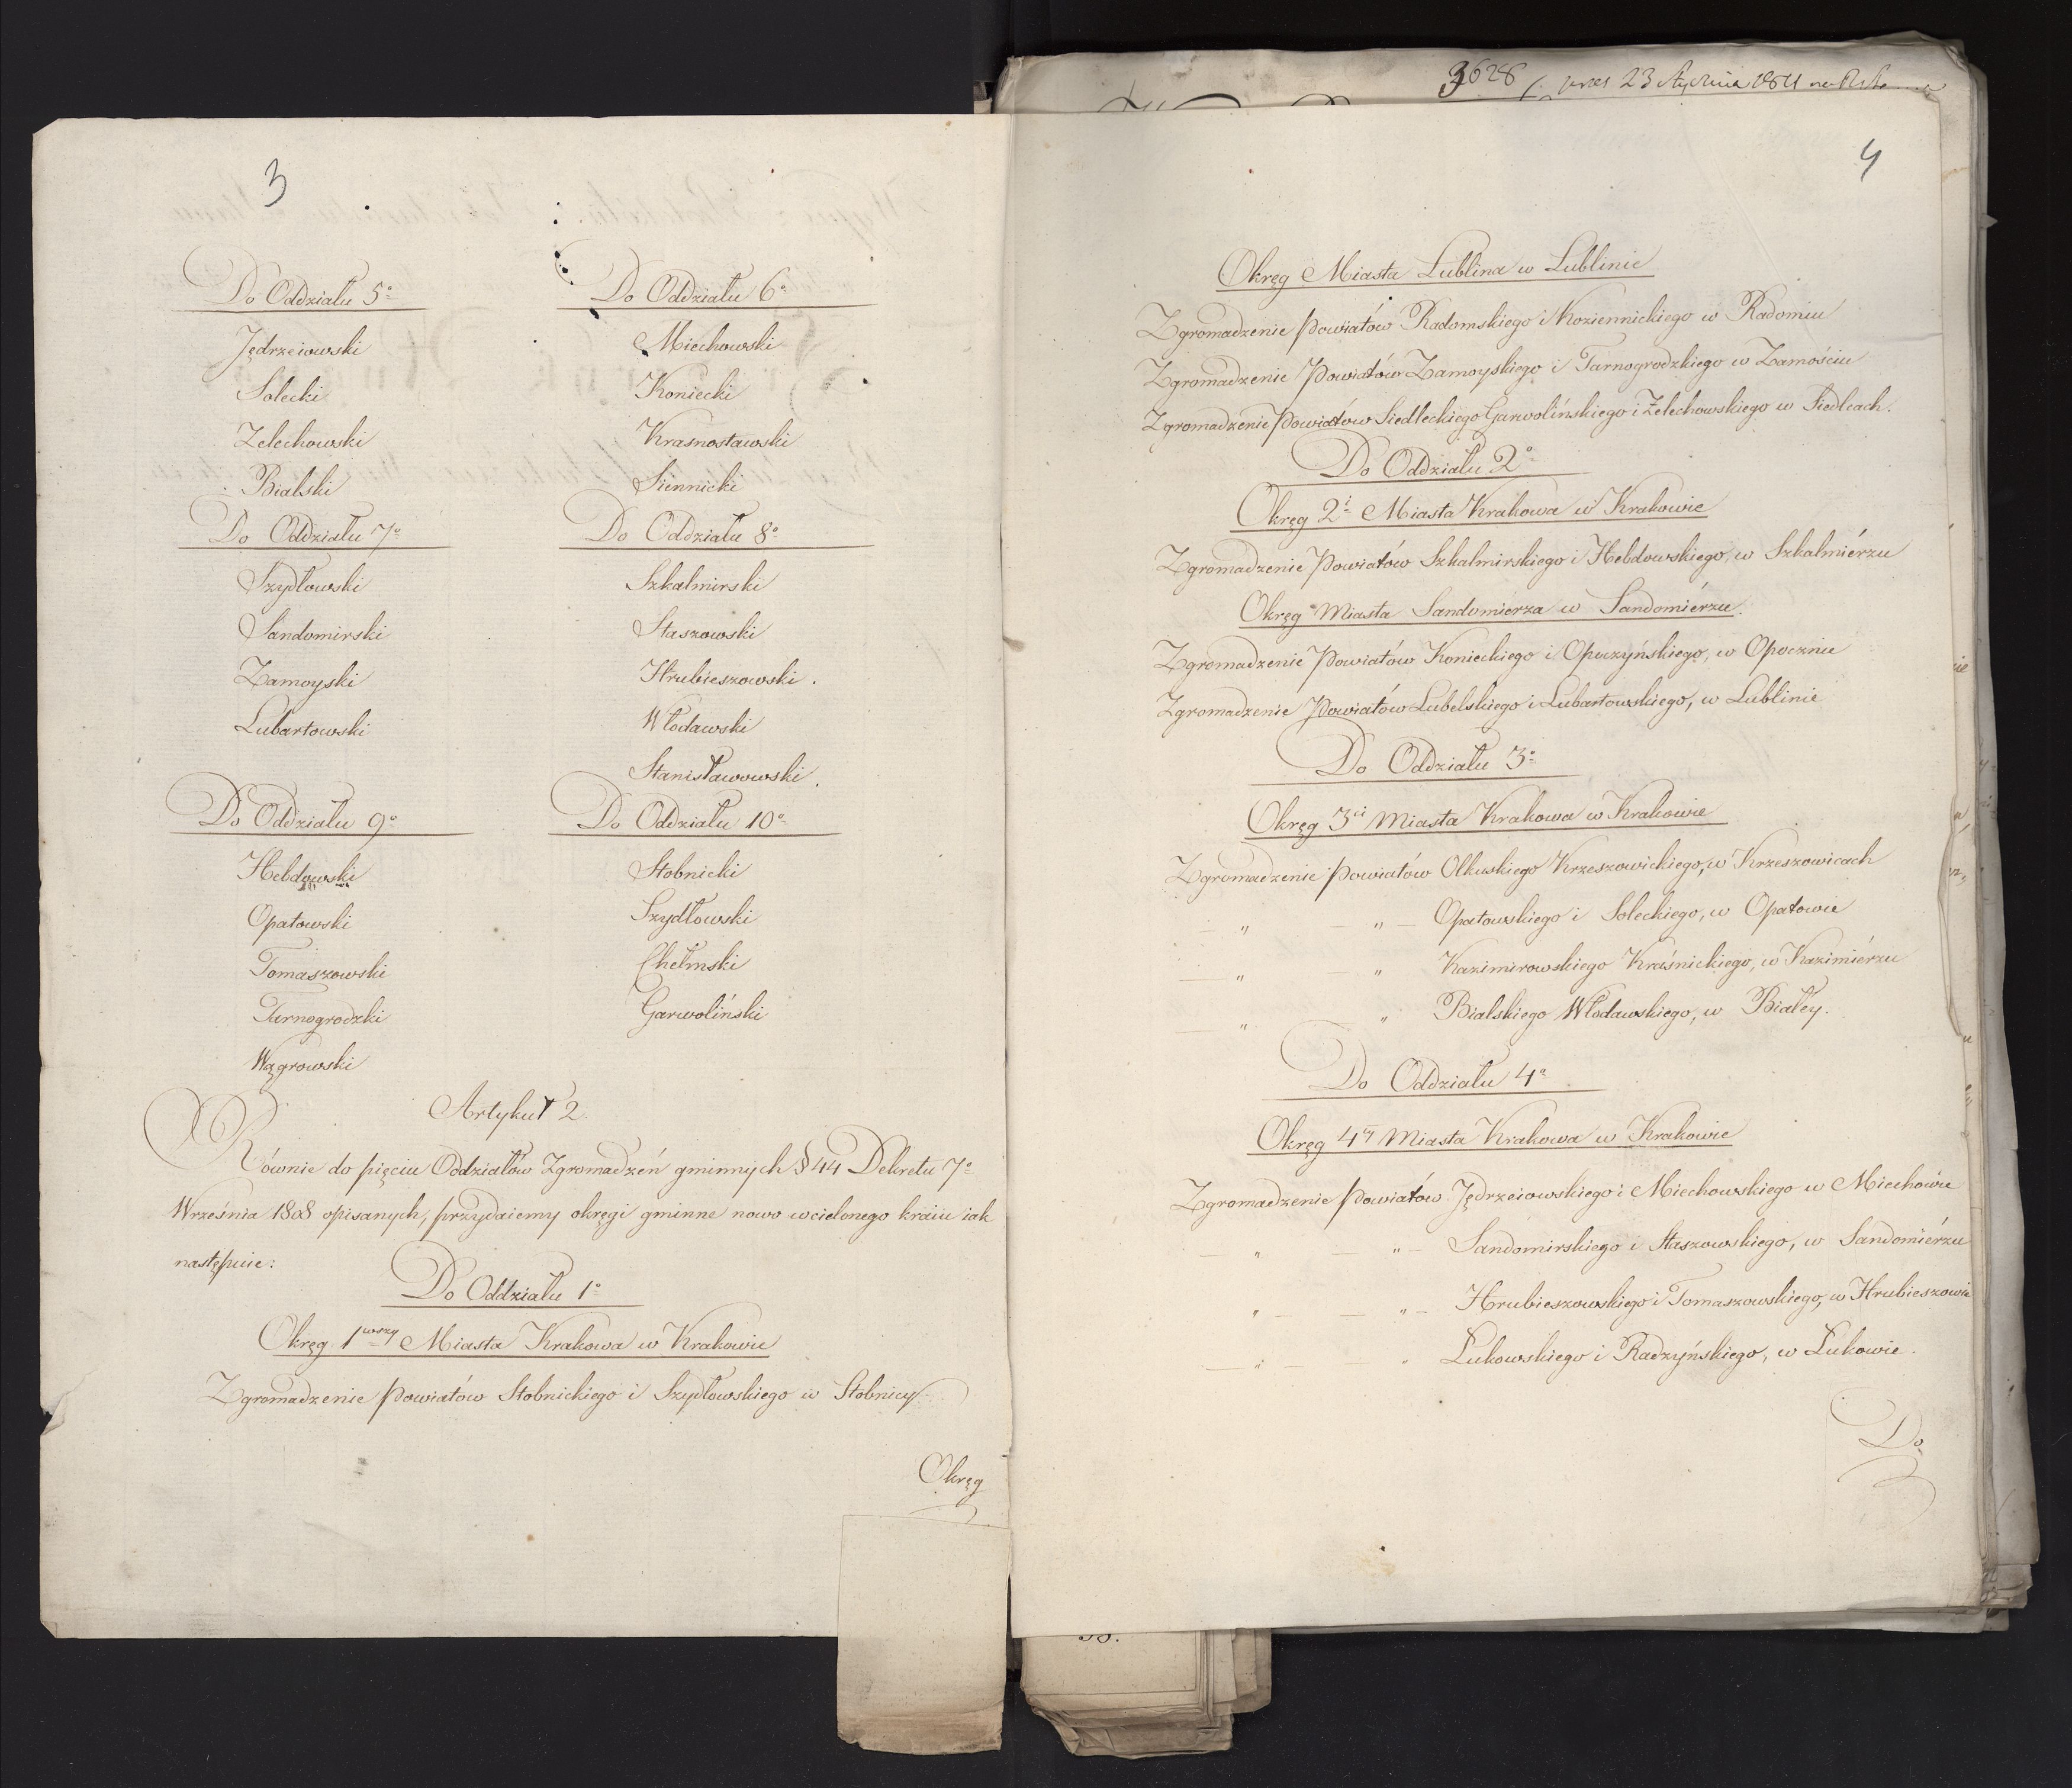 3
Do Oddziału 5º
Jędrzeiowski
Solecki
Zelechowski
Bialski
Do Oddziału 6º
Miechowski
Koniecki
Krasnostawski
Siennicki
Do Oddziału 7º
Szydłowski
Sandomirski
Zamoyski
Lubartowski
Do Oddziału 8º
Szkalmirski
Staszowski
Hrubieszowski.
Włodawski
Stanisławowski.
Do Oddziału 9º
Hebdowski
Opatowski
Tomaszowski
Tarnogrodzki
Wągrowski
Do Oddziału 10º
Stobnicki
Szydłowski
Chełmski
Garwoliński
Artykuł 2.
Równie do pięciu Oddziałów Zgromadzeń gminnych § 44 Dekretu 7º
Września 1808 opisanych, przydaiemy okręgi gminne nowo wcielonego kraiu iak
następuie:
Do Oddziału 1º
Okręg 1wszy Miasta Krakowa w Krakowie
Zgromadzenie Powiatów Stobnickiego i Szydłowskiego w Stobnicy
Okręg
3628 23 Stycznia
4
Okręg Miasta Lublina w Lublinie
Zgromadzenie Powiatów Radomskiego i Koziennickiego w Radomiu
Zgromadzenie Powiatów Zamoyskiego i Tarnogrodzkiego w Zamościu
Zgromadzenie Powiatów Siedleckiego Garwolińskiego i Żelechowskiego w Siedlcach.
Do Oddziału 2º
Okręg 2i Miasta Krakowa w Krakowie
Zgromadzenie Powiatów Szkalmirskiego i Hebdowskiego, w Szkalmiérzu
Okręg Miasta Sandomierza w Sandomiérzu.
Zgromadzenie Powiatów Konieckiego i Opoczyńskiego, w Opocznie
Zgromadzenie Powiatów Lubelskiego i Lubartowskiego, w Lublinie
Do Oddziału 3º
Okręg 3ci Miasta Krakowa w Krakowie
Zgromadzenie Powiatów Olkuskiego Krzeszowickiego, w Krzeszowicach
— „ — „ — Opatowskiego i Soleckiego, w Opatowie
— „ „ Kazimirowskiego Kraśnickiego, w Kazimiérzu
— „ „ Bialskiego Włodawskiego, w Białéy.
Do Oddziału 4º
Okręg 4ty Miasta Krakowa w Krakowie
Zgromadzenie Powiatów Jędrzeiowskiego i Miechowskiego w Miechowie
— „ — „ — Sandomirskiego i Staszowskiego, w Sandomiérzu
„ — — „ — Hrubieszowskiego i Tomaszowskiego, w Hrubieszowie
— „ — — „ Łukowskiego i Radzyńskiego, w Łukowie.
Do